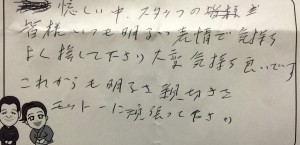 忙しい中、スタッフの
皆様いつも明るい表情で気持ち
よく接して下さり大変気持ち良いです
これからも明るさ親切さを
モットーに頑張って下さい